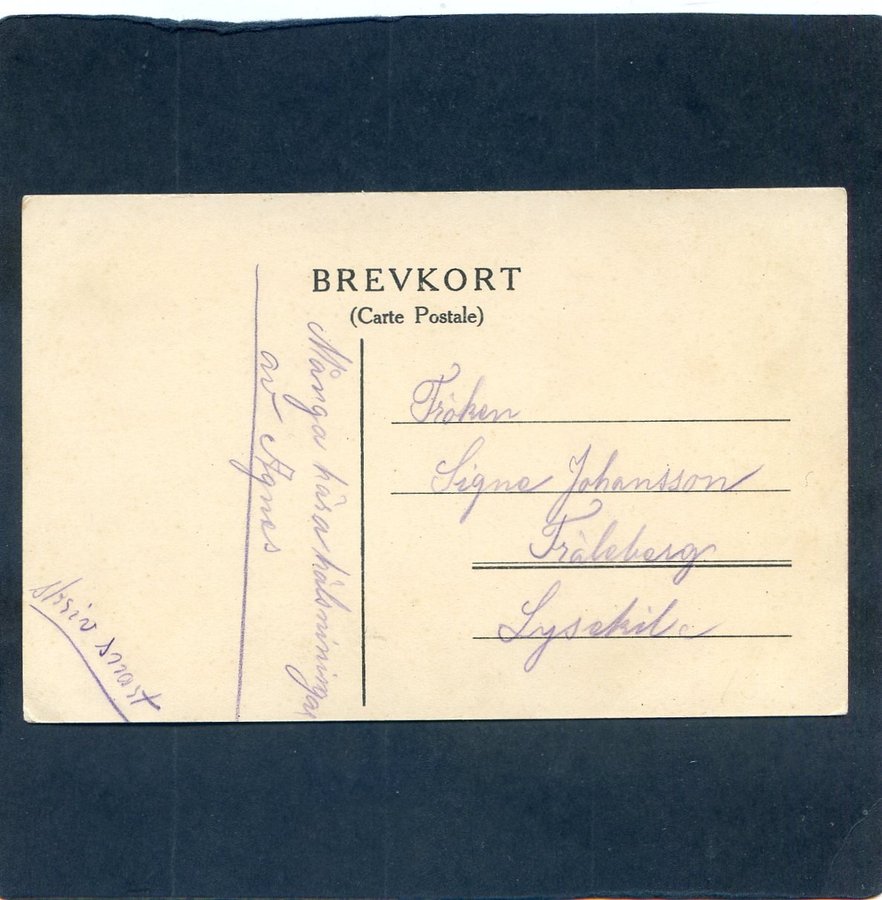 BREVKORT
(Carte Postale)
Många kära hälsniningar
av Agnes
skriv snart
Fröken
Signe Johansson
Fräleberg
Lysekil